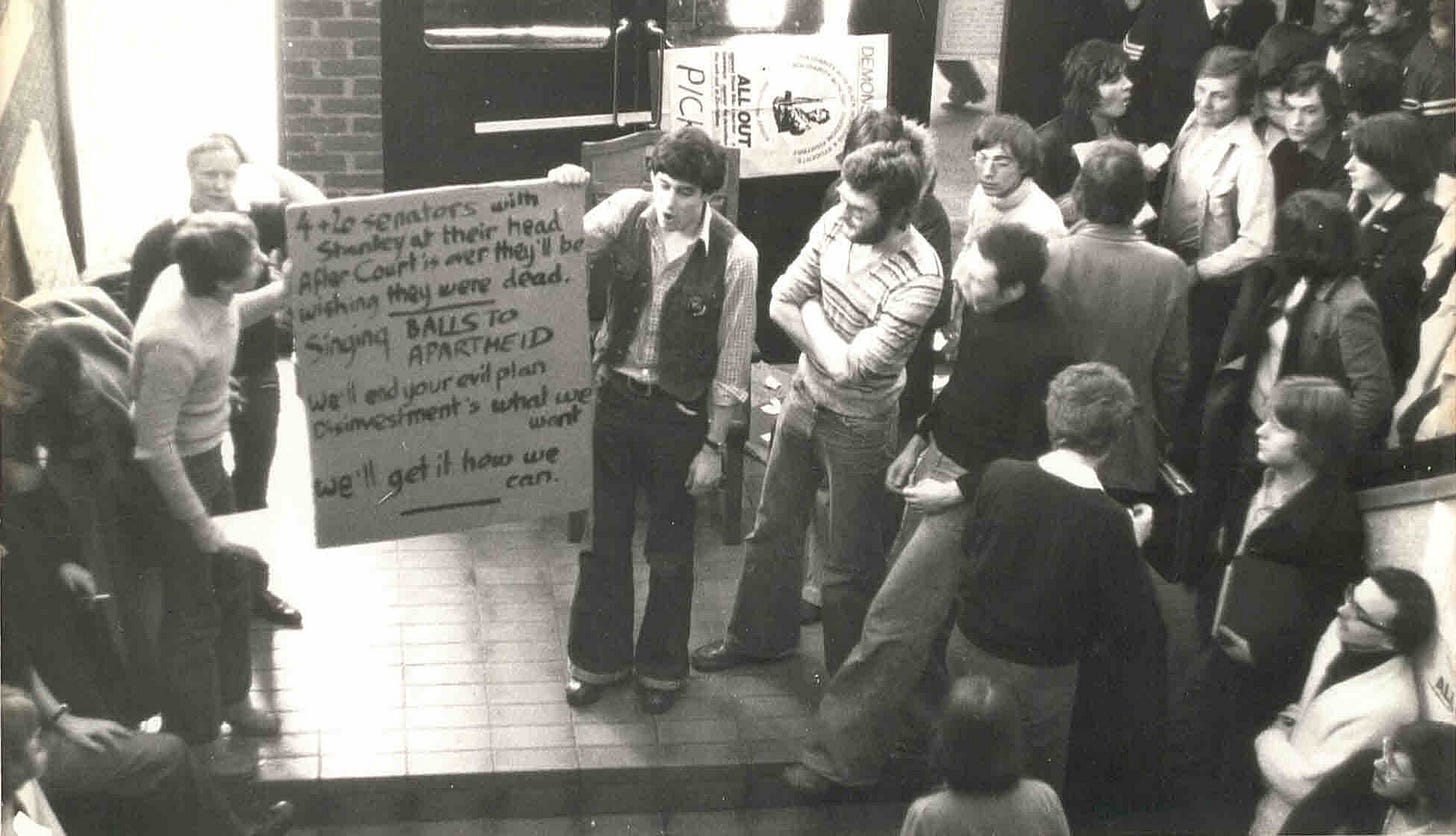 4 + 20 senators with
Stanley at their head
After Court is over they'll be
wishing they were dead.
Singing BALLS TO
APARTHEID
We'll end your evil plan
Disinvestment's what we
want
We'll get it how we
can.
DEMONS
ALL OUT
PICK